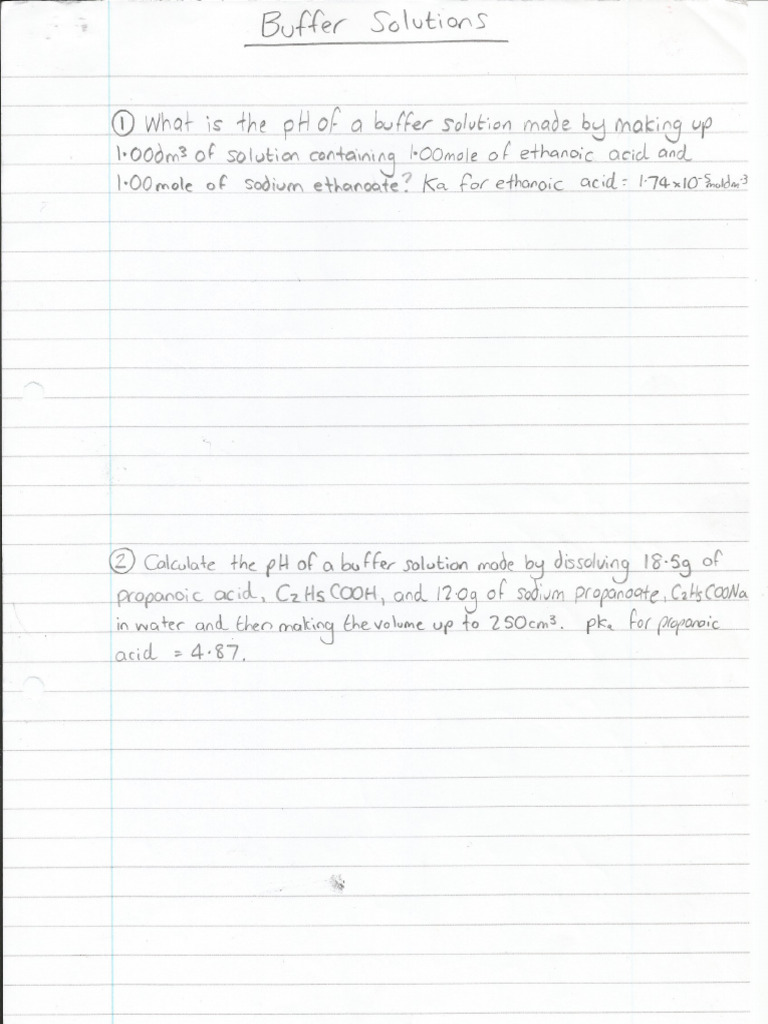 Buffer Solutions
① What is the pH of a buffer solution made by making up
1·00dm³ of solution containing 1·00mole of ethanoic acid and
1·00mole of sodium ethanoate? Ka for ethanoic acid = 1·74×10⁻⁵moldm⁻³
② Calculate the pH of a buffer solution made by dissolving 18·5g of
propanoic acid, C₂H₅COOH, and 12·0g of sodium propanoate, C₂H₅COONa
in water and then making the volume up to 250cm³. pKa for propanoic
acid = 4·87.